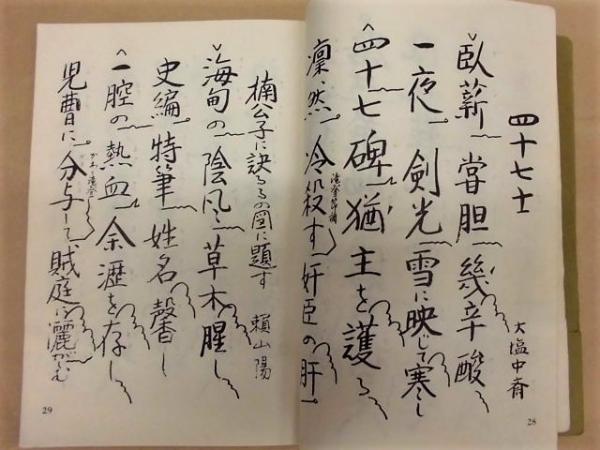 四十七士
大塩中斎
臥薪嘗胆幾辛酸
一夜剣光雪に映じて寒し
四十七碑猶主を護る
凛然冷殺す奸臣の肝
28
楠公子に訣るるの図に題す 頼山陽
海甸の陰風草木腥し
史編特筆姓名馨し
一腔の熱血余瀝を存し
児曹に分与して賊庭に灑がしむ
29